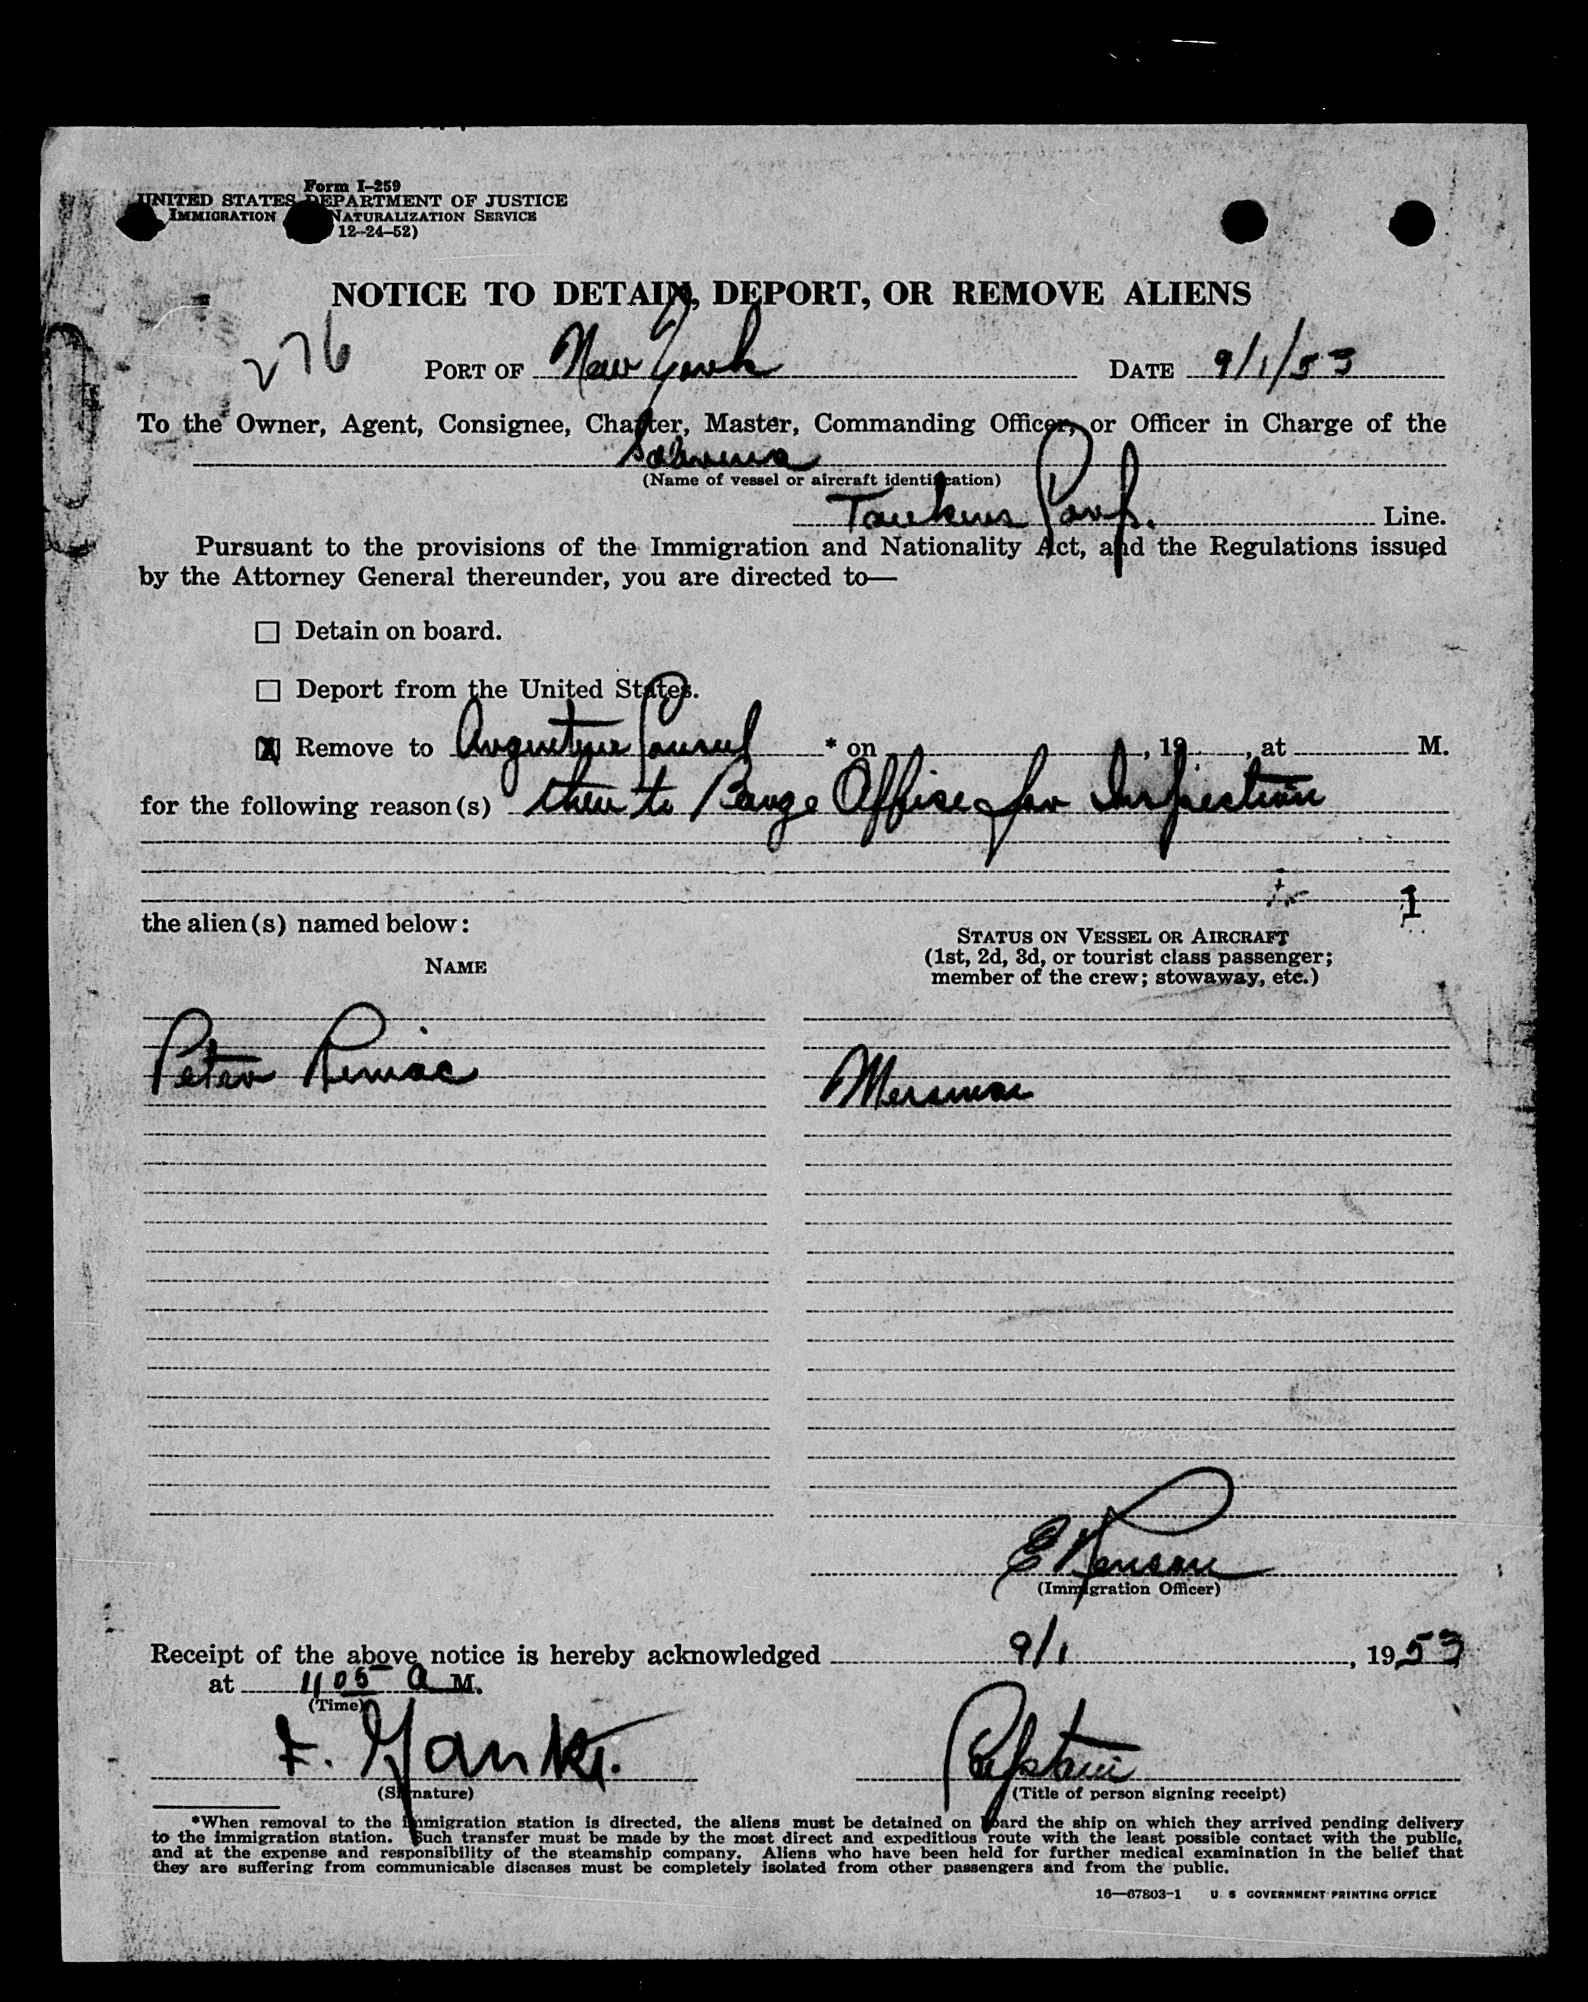 Form I-259
UNITED STATES DEPARTMENT OF JUSTICE
IMMIGRATION NATURALIZATION SERVICE
12-24-52)
NOTICE TO DETAIN, DEPORT, OR REMOVE ALIENS
276
PORT OF New York DATE 9/1/53
To the Owner, Agent, Consignee, Charter, Master, Commanding Officer, or Officer in Charge of the
(Name of vessel or aircraft identification)
Line.
Pursuant to the provisions of the Immigration and Nationality Act, and the Regulations issued
by the Attorney General thereunder, you are directed to—
Detain on board.
Deport from the United States.
X Remove to Argentine Consul * on , 19 , at M.
for the following reason(s) then to Barge Office for Inspection
1
the alien(s) named below:
STATUS ON VESSEL OR AIRCRAFT
(1st, 2d, 3d, or tourist class passenger;
member of the crew; stowaway, etc.)
NAME
Peter
E
(Immigration Officer)
Receipt of the above notice is hereby acknowledged 9/1, 1953
at 11 05 A M.
(Time)
(Signature)
(Title of person signing receipt)
*When removal to the immigration station is directed, the aliens must be detained on board the ship on which they arrived pending delivery
to the immigration station. Such transfer must be made by the most direct and expeditious route with the least possible contact with the public,
and at the expense and responsibility of the steamship company. Aliens who have been held for further medical examination in the belief that
they are suffering from communicable diseases must be completely isolated from other passengers and from the public.
16—67803-1 U. S. GOVERNMENT PRINTING OFFICE